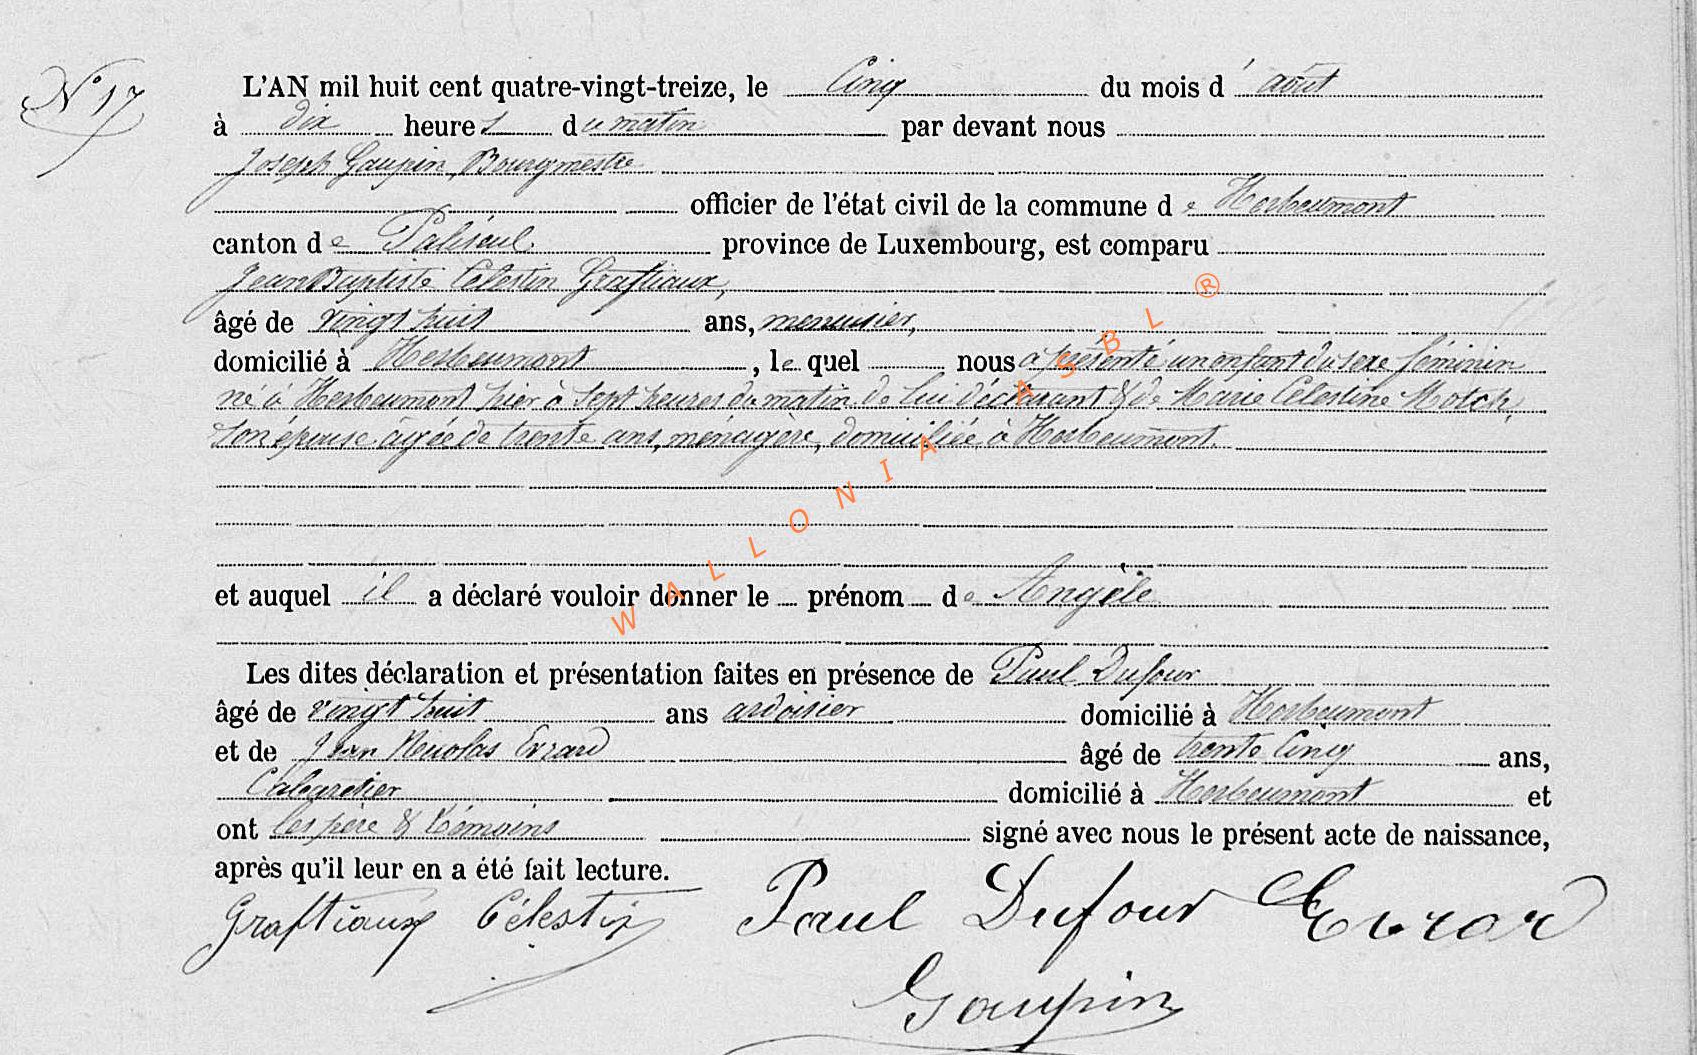 N° 17
L'AN mil huit cent quatre-vingt-treize, le Cinq du mois d'août
à dix heures du matin par devant nous
Joseph Gaupin, Bourgmestre
officier de l'état civil de la commune de Herbeumont
canton de Paliseul province de Luxembourg, est comparu
Jean Baptiste Célestin Graftiaux,
âgé de vingt huit ans, menuisier,
domicilié à Herbeumont, lequel nous a présenté un enfant du sexe féminin
né à Herbeumont hier à sept heures du matin de lui déclarant & de Marie Célestine Motch,
son épouse âgée de trente ans, ménagère, domiciliée à Herbeumont.
et auquel il a déclaré vouloir donner le prénom de Angèle
Les dites déclaration et présentation faites en présence de Paul Dufour
âgé de vingt huit ans ardoisier domicilié à Herbeumont
et de Jean Nicolas Evrard âgé de trente cinq ans,
Cabaretier domicilié à Herbeumont et
ont les père & témoins signé avec nous le présent acte de naissance,
après qu'il leur en a été fait lecture.
Graftiaux Célestin Paul Dufour Evrard
Gaupin
WALLONIA ASBL ®